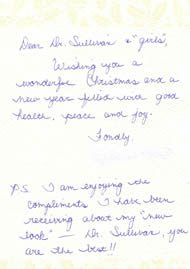 Dear Dr. Sullivan & "girls",
Wishing you a
wonderful Christmas and a
new year filled with good
health, peace and joy.
Fondly
P.S. I am enjoying the
compliments I have been
receiving about my "new
look" — Dr. Sullivan, you
are the best!!